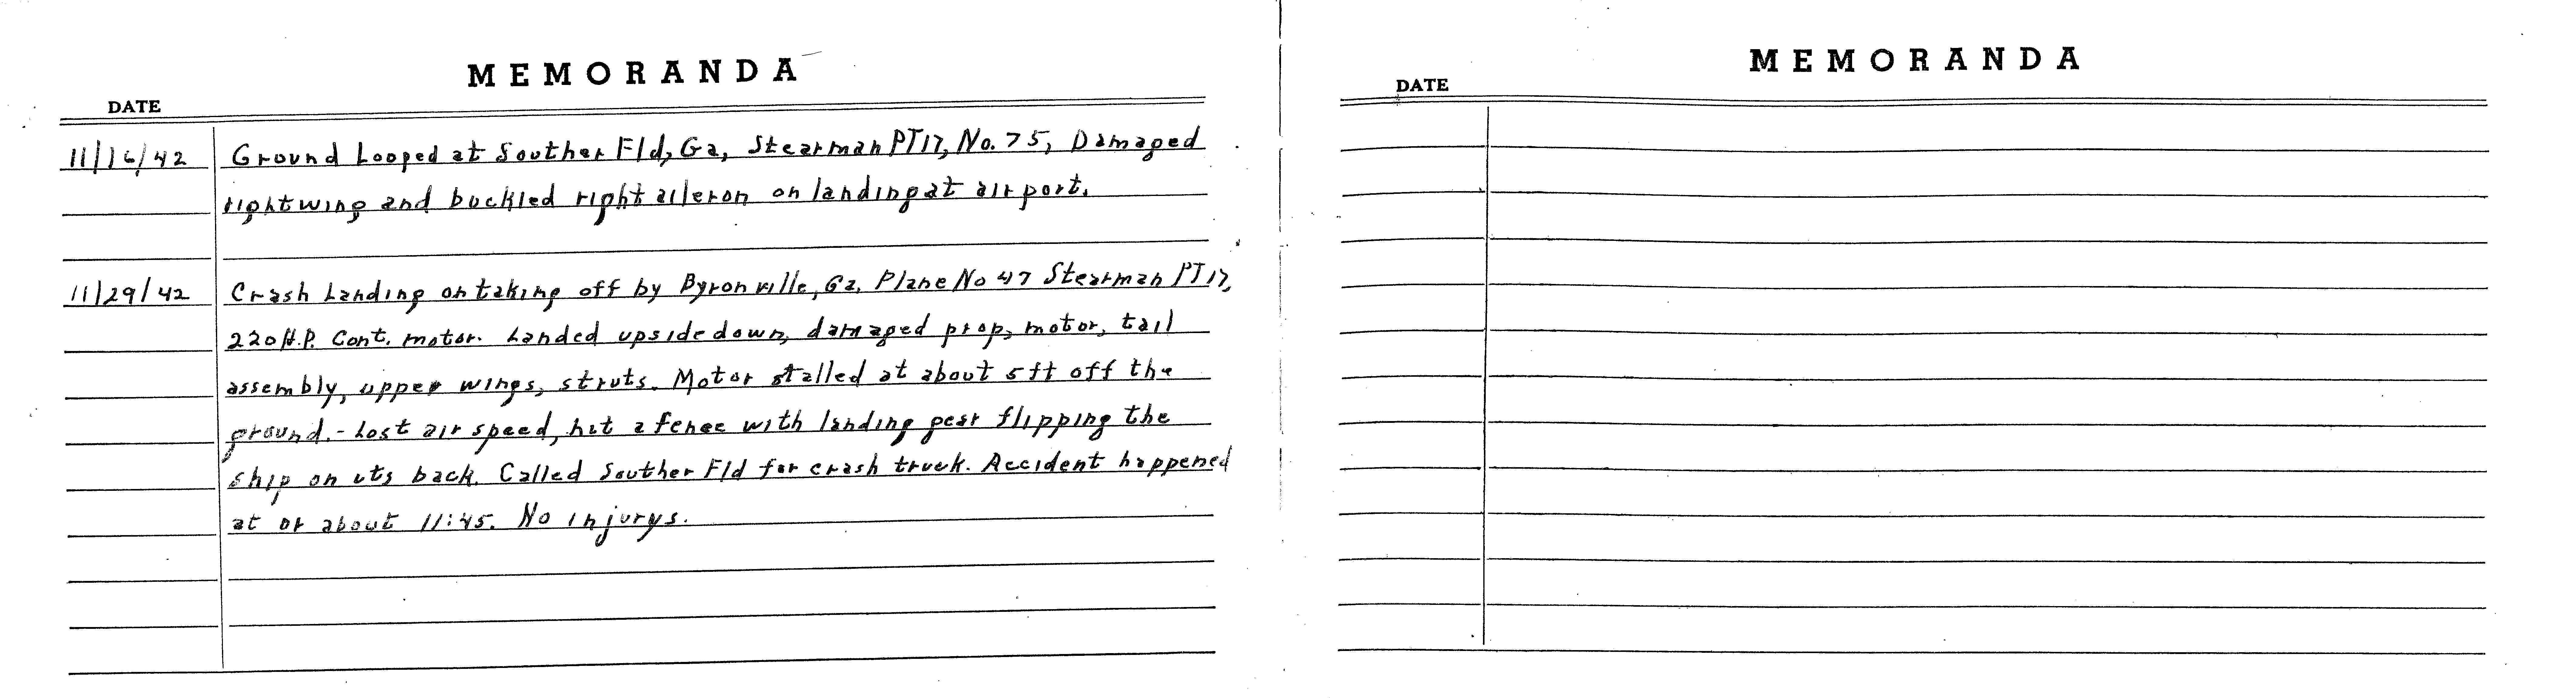 MEMORANDA
DATE
11/16/42 Ground Looped at Souther Fld, Ga, Stearman PT17, No. 75, Damaged
right wing and buckled right aileron on landing at airport.
11/29/42 Crash Landing on taking off by Byronville, Ga. Plane No 47 Stearman PT17,
220 H.P. Cont. motor. Landed upside down, damaged prop, motor, tail
assembly, upper wings, struts. Motor stalled at about 5ft off the
ground.- Lost air speed, hit a fence with landing gear flipping the
ship on its back. Called Souther Fld for crash truck. Accident happened
at or about 11:45. No injurys.
MEMORANDA
DATE